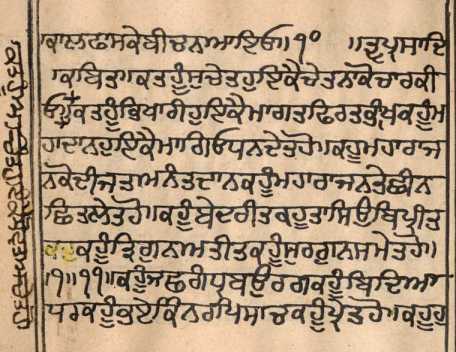 ਕਾਲਫਾਸਕੇਬੀਚਨਆਇਓ॥੧੦॥ਤ੍ਵਪ੍ਰਸਾਦਿ
ਕਬਿਤ॥ਕਤਹੂੰਸੁਚੇਤਹੁਇਕੈਚੇਤਨਾਕੋਚਾਰਕੀ
ਓ ਕਤਹੂੰਭਿਖਾਰੀਹੁਇਕੈਮਾਗਤਫਿਰਤਭੀਖਕਹੂੰਮ
ਹਾਦਾਨਹੁਇਕੈਮਾਗਿਓਧਨਦੇਤਹੋ॥ਕਹੂਮਹਾਰਾਜ
ਨਕੋਦੀਜਤਅਨੰਤਦਾਨਕਹੂੰਮਹਾਰਾਜਨਤੇਛੀਨ
ਛਿਤਲੇਤਹੋ॥ਕਹੂੰਬੇਦਰੀਤਕਹੂਤਾਸਿਉਬਿਪ੍ਰੀਤ
ਕਹੂੰਤ੍ਰਿਗੁਨਅਤੀਤਕਹੂੰਸੁਰਗੁਨਸਮੇਤਹੋ॥
॥੧॥੧੧॥ਕਹੂੰਜਛਗੰਧ੍ਰਬਉਰਗਕਹੂੰਬਿਦਿਆ
ਧਰਕਹੂੰਭਏਕਿੰਨਰਪਿਸਾਚਕਹੂੰਪ੍ਰੇਤਹੋ॥ਕਹੂੰਹੁ